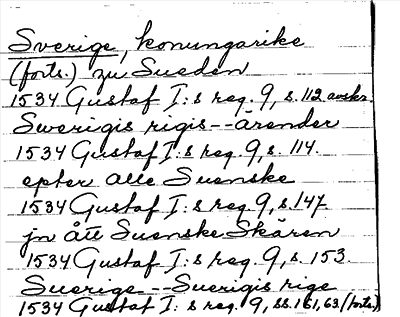 Sverige, konungarike
(forts.) zu Sueden
1534 Gustaf I:s reg. 9, s. 112 avskr.
Swerigis rigis--ärender
1534 Gustaf I:s reg. 9, s. 114.
epter alle Suenske
1534 Gustaf I:s reg. 9, s. 147
jn ått Suenske Skären
1534 Gustaf I:s reg. 9, s. 153.
Suerige--Suerigis rige
1534 Gustaf I:s reg. 9, ss. 161, 63. (forts.)